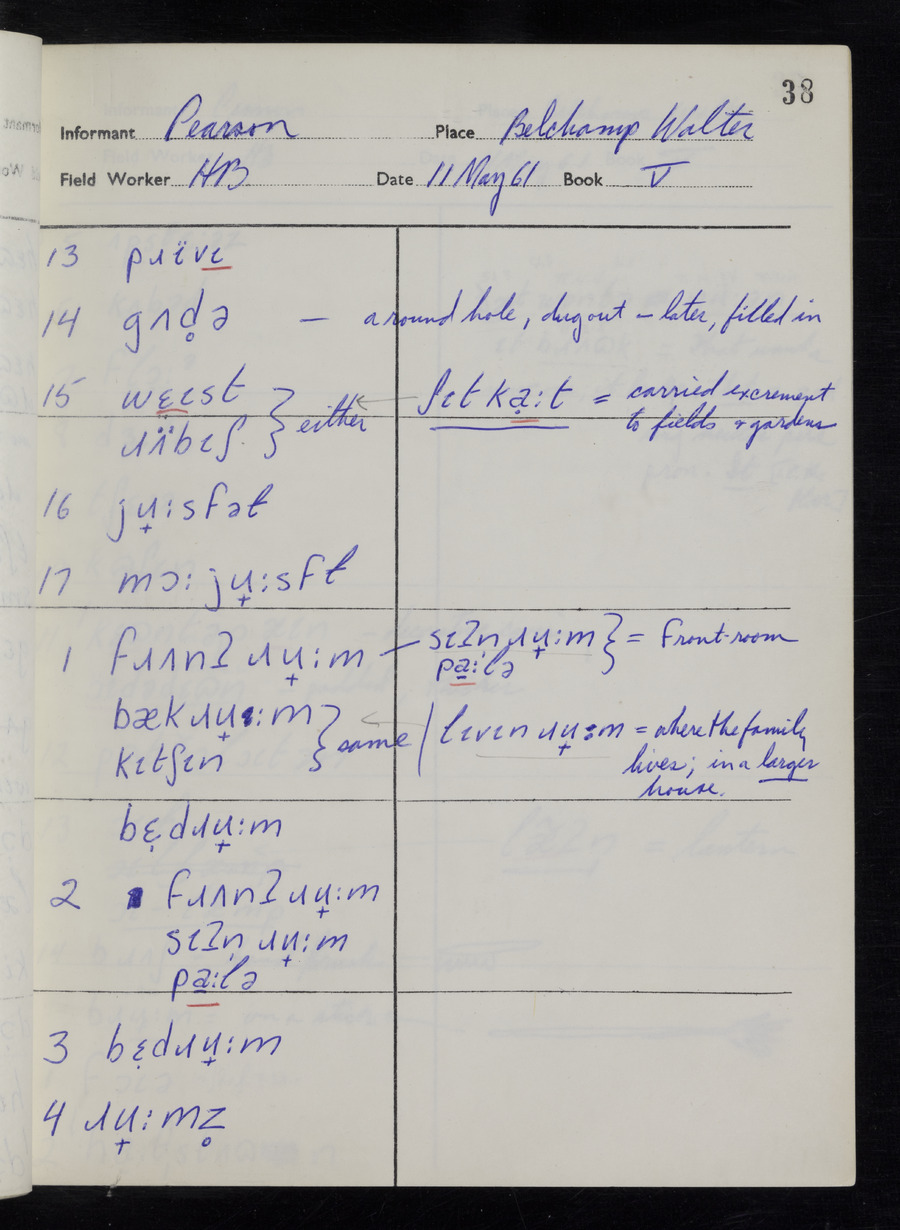 38
Informant Pearson Place Belchamp Walter
Field Worker HB Date 11 May 61 Book V
13 pɹïvɩ
14 gʌd̥ə — a round hole, dug out – later, filled in
15 wɛ̤ɩst } either ← ʃɩt ka̤:t = carried excrement
ɹʌ̈bɩʃ to fields & gardens
16 jʉ̟:sfət
17 mɔ: jʉ̟:sft
1 fɹʌnʔ ɹʉ̟:m — sɩʔn̩ ɹʉ̟:m } = Front-room
pa̱:lə
bækɹʉ̟:m } same ← / lɩvɩn ɹʉ̟:m = where the family
kɩtʃɩn lives; in a larger
house.
bɛ̣dɹʉ̟:m
2 fɹʌnʔ ɹʉ̟:m
sɩʔn̩ ɹʉ̟:m
pa̱:lə
3 bɛ̣dɹʉ̟:m
4 ɹʉ̟:mz̥